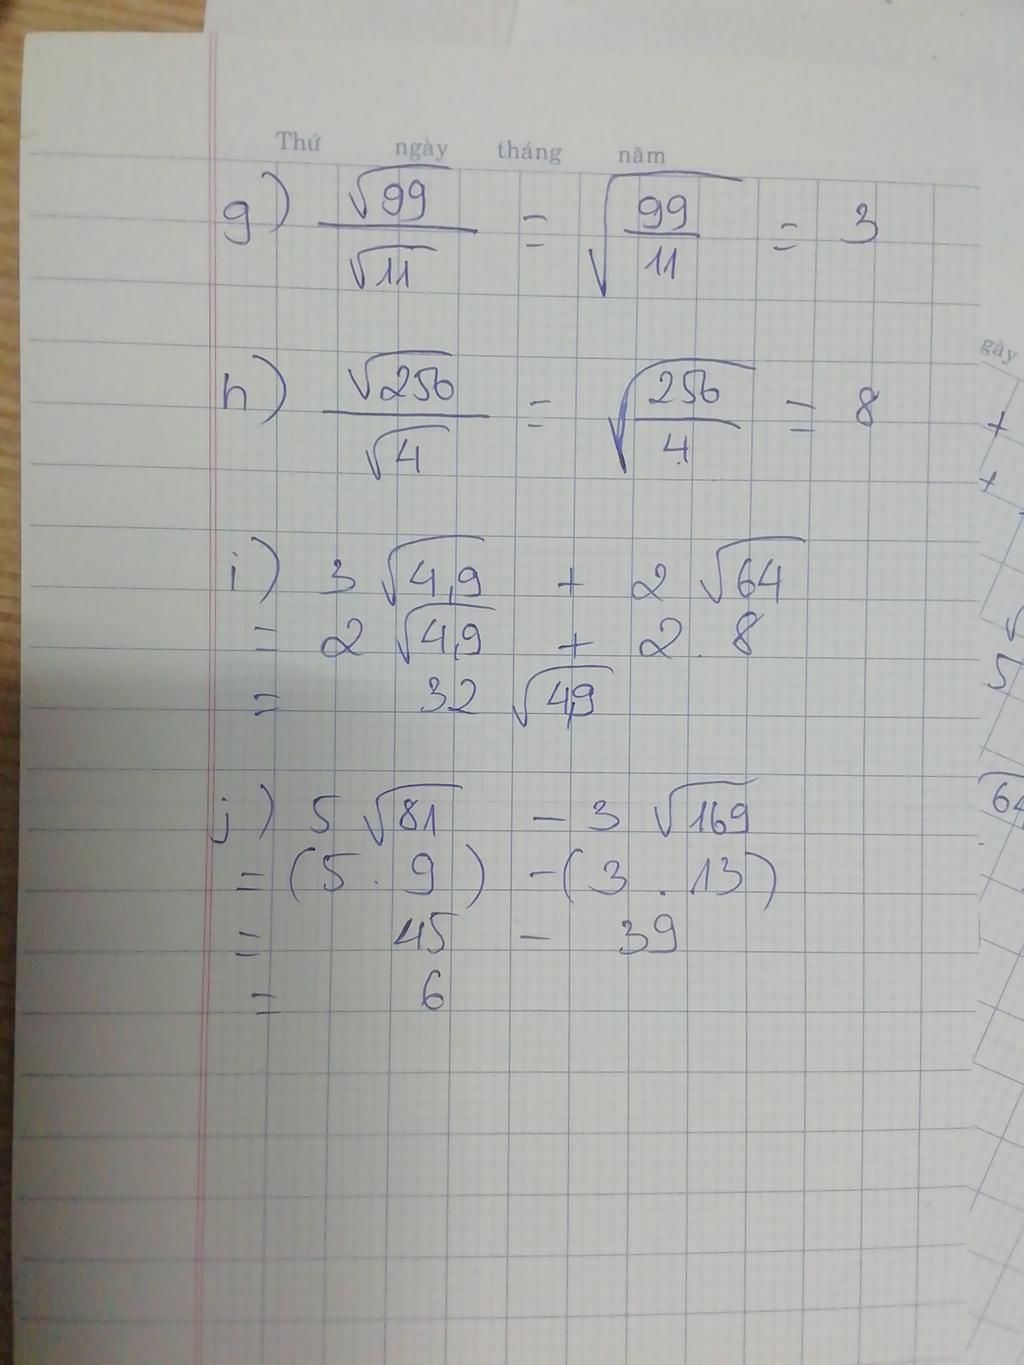 Thứ ngày tháng năm
g) √99/√11 = √(99/11) = 3
gày
h) √256/√4 = √(256/4) = 8
+
+
i) 3 √4,9 + 2 √64
= 2 √4,9 + 2 . 8
5
= 32 √4,9
j) 5 √81 - 3 √169
64
= (5 . 9) - (3 . 13)
= 45 - 39
= 6